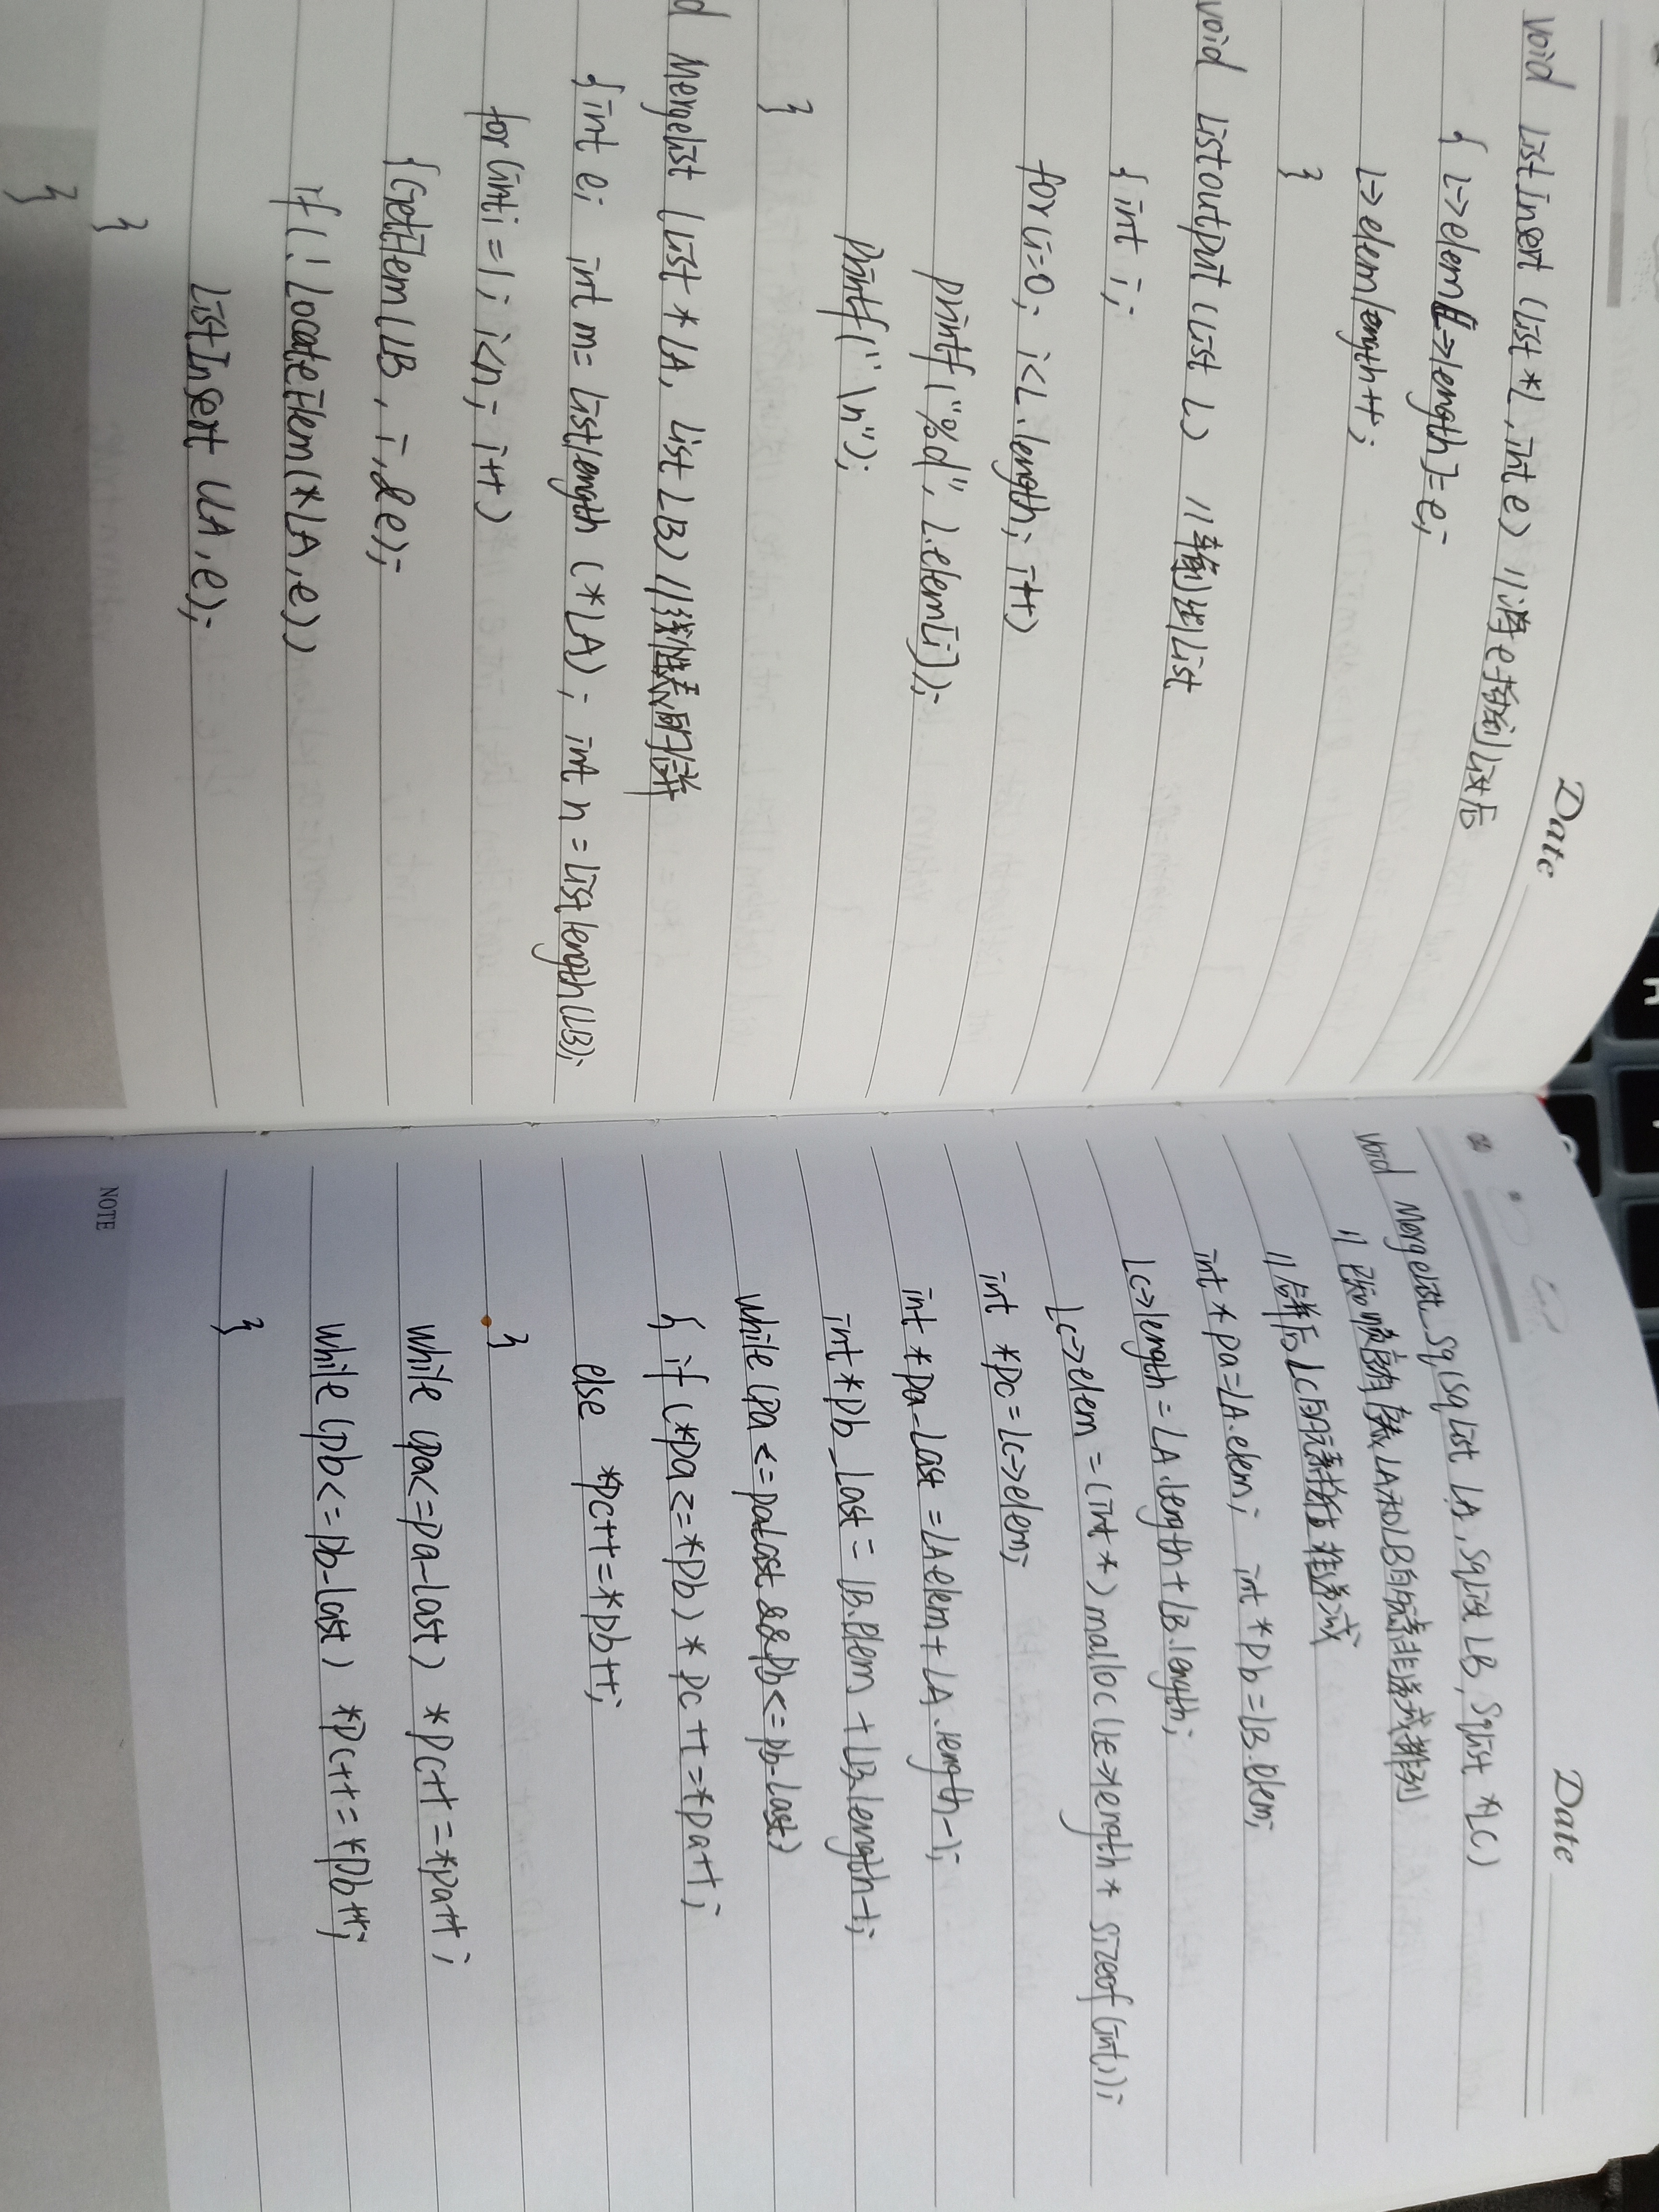 Date
void ListInsert (List *L, int e) //将e插到List后
{ L->elem[L->length]=e;
L->elem/length++;
}
void Listoutput (List L) //输出List
{ int i;
for(i=0; i<L.length; i++)
printf("%d", L.elem[i]);
printf("\n");
}
d MergeList (List *LA, List LB) //线性表的合并
{int e; int m= Listlength (*LA); int n = Listlength(LB);
for(int i=1; i<n; i++)
{GetElem(LB, i, &e);
if(!LocateElem(*LA, e))
ListInsert (LA, e);
}
}
Date
void MergeList_Sq(SqList LA, SqList LB, SqList *LC)
//已知顺序有序表LA和LB的元素非递减排列
//合并后LC的元素
int *pa=LA.elem; int *pb=LB.elem;
LC->length = LA.length+LB.length;
LC->elem = (int *) malloc (LC->length * sizeof(int));
int *pc = LC->elem;
int *pa_last = LA.elem + LA.length-1;
int *pb_last = LB.elem + LB.length-1;
while (pa <= pa_last && pb <= pb_last)
{ if (*pa <= *pb) *pc++ = *pa++;
else *pc++ = *pb++;
}
while (pa<=pa_last) *pc++ = *pa++;
while (pb<=pb_last) *pc++ = *pb++;
}
NOTE